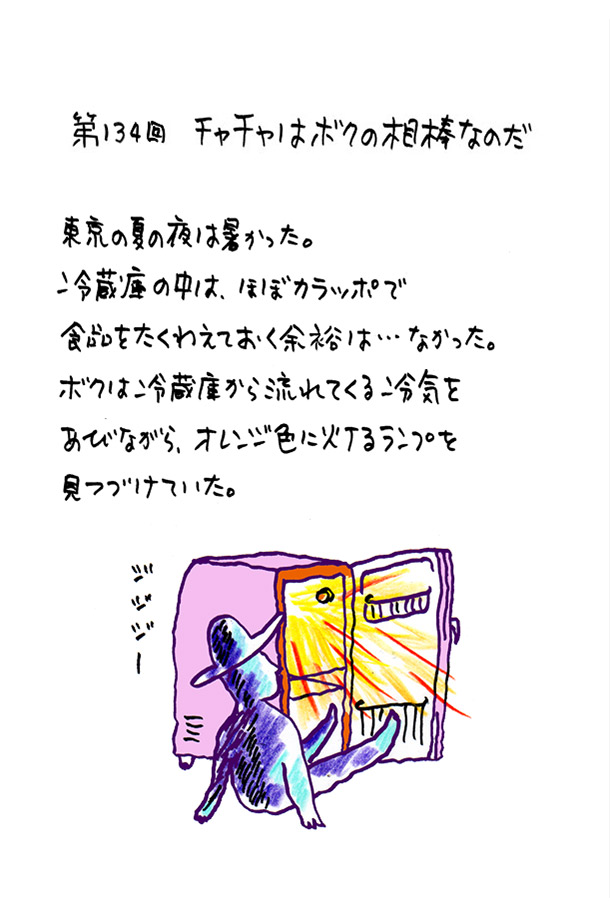 第134回 チャチャはボクの相棒なのだ
東京の夏の夜は暑かった。
冷蔵庫の中は、ほぼカラッポで
食品をたくわえておく余裕は…なかった。
ボクは冷蔵庫から流れてくる冷気を
あびながら、オレンジ色に火ケるランプを
見つづけていた。
ジジジー